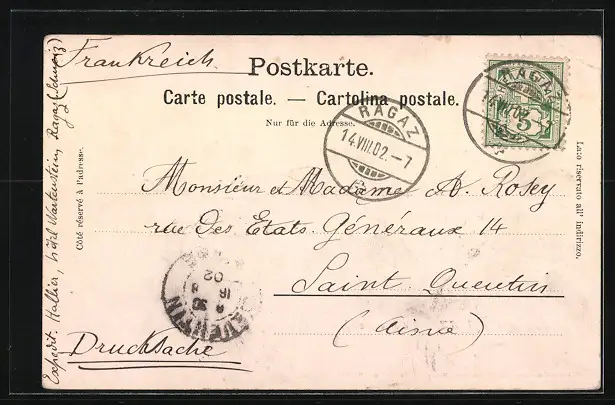 Frankreich
Postkarte.
Carte postale. — Cartolina postale.
Nur für die Adresse.
RAGAZ
14.VIII.02.–7
RAGAZ
VIII.02
5
Monsieur et Madame A. Rosey
rue des Etats-Généraux 14
Saint Quentin
(Aisne)
Drucksache
QUENTIN
16
02
Côté réservé à l'adresse.
Lato riservato all' indirizzo.
Expedit. Hallier, hôtel Wartenstein, Ragaz (Schweiz)